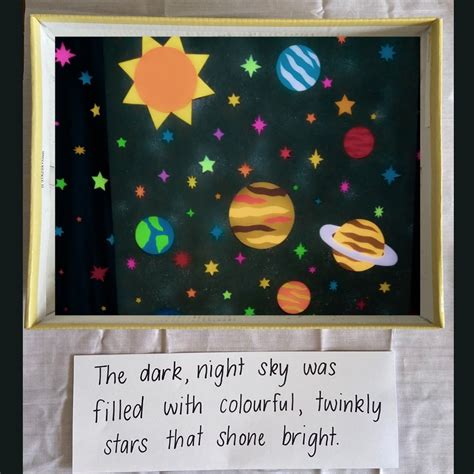 The dark, night sky was
filled with colourful, twinkly
stars that shone bright.